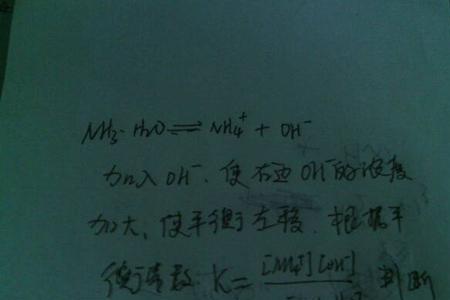 NH3·H2O ⇌ NH4+ + OH-
加入OH-,使右边OH-的浓度
加大,使平衡左移,根据平
衡常数 K= [NH4+][OH-] 判断